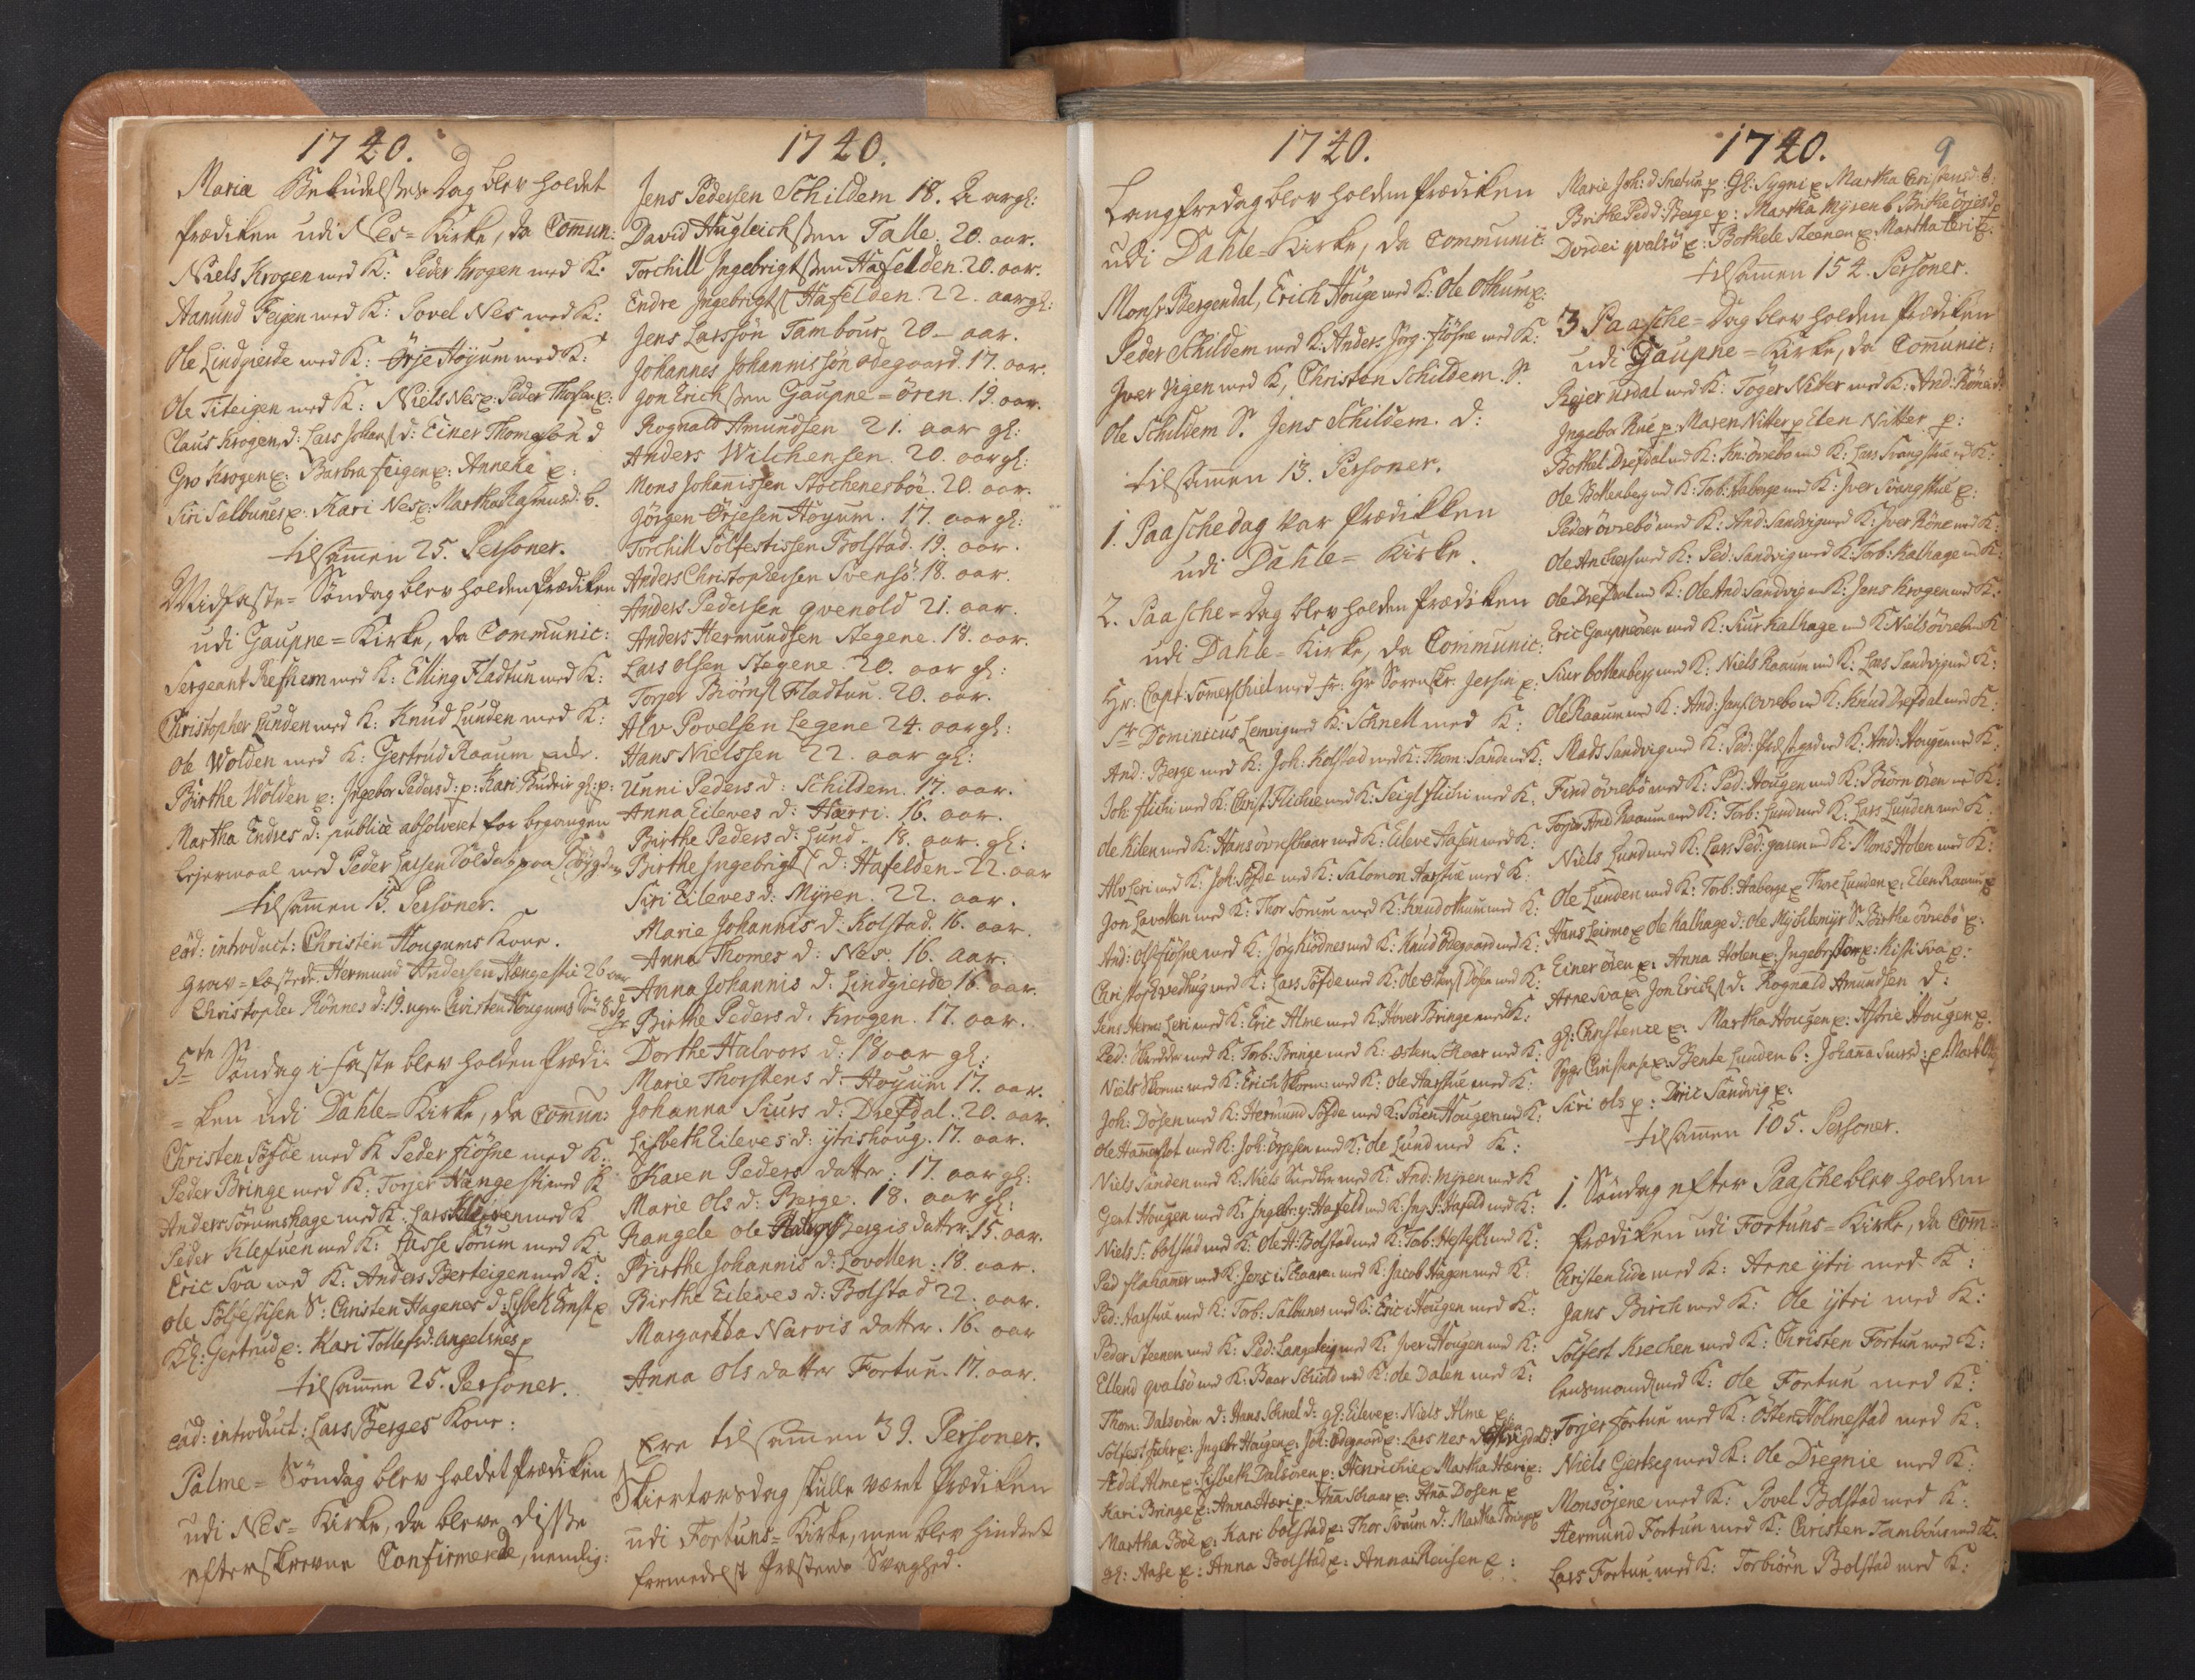 1740.
Maria Bebudelsses Dag blev holdet
Prædiken udi Nes=Kirke, da Comun:
Niels Krogen med K: Peder Krogen med K:
Aamund Feigen med K: Povel Nes med K:
Ole Lindgierde med K: Ørje Høyum med K:
Ole Titeigen med K: Niels Nes p: Peder Thosen p:
Claus Krogen d: Lars Johans d: Einer Thomesøn d
Gro Krogen p: Barbra feigen p: Anneke p:
Siri Salbunes p: Kari Nes p: Martha Rasmusd: b.
tilsamen 25. Personer.
Midfaste= Søndag blev holden Prædiken
udi Gaupne=Kirke, da Communic:
Sergeant Refhem med K: Elling Fladtun med K:
Christopher Lunden med K: Knud Lunden med K:
Ole Wolden med K: Gertrud Raaum
Birthe Wolden p: Ingebor Peders d: p: Kari gl: p:
Martha Endres d: publice absolveret for begangen
Lejermaal med Peder Larsen Soldat paa
tilsamen 15. Personer.
eod: introduct: Christen Hougums Kone.
Grav=fæstede Hermund Andersen Hængestie 26 aar
Christopher Rønnes d: 19. uger Christen Hougums Søn 8 d.
5te Søndag i Faste blev holden Prædi=
=ken udi Dahle=Kirke, da Comun:
Christen Søfde med K Peder fiøsne med K:
Peder Bringe med K: Torjer Hængesti med K
Anders Sørumshage med K: Lars Kleiven med K
Peder Klefuen med K: Lasse Sørum med K
Eric Sva med K: Anders Berteigen med K:
Ole Sølfestsen S: Christen Hagenes d: Lisbet Ernst p
Kl: Gertrud p: Kari Tollefsd: Angelsnes p
tilsamen 25. Personer.
eod: introduct: Lars Berges Kone:
Palme= Søndag blev holdet Prædiken
udi Nes=Kirke, da bleve disse
efterskrevne Confirmerede, nemlig:
1740.
Jens Pedersen Schildem 18. Aar gl:
David Hugleichssen Talle. 20. aar.
Torchill Ingebrigtssen Hafelden. 20. aar.
Endre Ingebrigts Hafelden. 22. aar gl:
Jens Larssøn Tambour 20. aar.
Johannes Johannissøn Ødegaard. 17. aar.
Jon Erichssen Gaupne=øren. 19. aar.
Rognald Amundsen 21. aar gl:
Anders Wilchensen. 20. aar gl:
Mons Johanissen Stochenesbøe. 20. aar.
Jørgen Ørjesen Høyum. 17. aar gl:
Torchill Solfestissen Bolstad. 19. aar.
Anders Christophersen Svensø. 18. aar.
Anders Pedersen qvenold 21. aar.
Anders Hermundsen Stegene. 18. aar.
Lars Olsen Stegene. 20. aar gl:
Torjer Biørns Fladtun. 20. aar.
Alv Povelsen Legene 24. aar gl:
Hans Nielssen 22. aar gl:
Unni Peders d: Schildem. 17. aar.
Anna Eileves d: Hærri. 16. aar.
Birthe Peders d: Lund. 18. aar. gl:
Birthe Ingebrigts d: Hafelden. 22. aar
Siri Eileves d: Myren. 22. aar.
Marie Johannis d: Kolstad. 16. aar.
Anna Thomes d: Nes. 16. aar.
Anna Johannis d: Lindgierde 16. aar.
Birthe Peders d. Krogen. 17. aar.
Dorthe Halvors d: 18 aar gl:
Marie Thorstens d: Høyum 17. aar.
Johanna Siurs d: Drefdal. 20. aar.
Lisbeth Eileves d: ytrishoug. 17. aar.
Karen Peders datter: 17. aar gl:
Marie Ols d: Berge. 18. aar gl:
Rangele Ole datter. 15. aar.
Birthe Johannis d: Lovotten: 18. aar.
Birthe Eileves d: Bolstad 22. aar.
Margaretha Narvis datter. 16. aar
Anna Ols datter Fortun. 17. aar.
Ere tilsamen 39. Personer.
Skiertorsdag skulle været Prædiken
udi Fortuns=Kirke, men blev hindret
formedelst Præstens Svaghed.
1740.
Langfredag blev holden Prædiken
udi Dahle=Kirke, da Communic:
Monsr Bergendal, Erich Houge med K: Ole Othum p:
Peder Schildem med K: Anders Jørg: fiøsne med K:
Iver Vigen med K, Christen Schildem S.
Ole Schildem S. Jens Schildem. d:
tilsamen 13. Personer.
1. Paaschedag var Prædikken
udi Dahle=Kirke.
2. Paasche=Dag blev holden Prædiken
udi Dahle=Kirke, da Communic:
Hr: Capt: Somerschiel med Fr: Hr Sorenskr. Jersin p:
Sr Dominicus Lemvig med K: Schnell med K:
And: Berge med K: Joh: Kolstad med K: Thom: Sande med K:
Joh: flichi med K: Christ: Flichie med K: Seigl flichi med K:
Ole Kilen med K: Hans øvreskaar med K: Eileve Aasen med K:
Alv Leri med K: Joh: Søfde med K: Salomon Aarstue med K:
Jon Lavotten med K: Thor Sorum med K: Knud Othum med K:
And: Ols fiøsne med K: Jørg Kiødnes med K: Knud Ødegaard med K:
Christof: Svedhug med K: Lars Søfde med K: Ole Østens Døsen med K:
Jens Herm: Leri med K: Eric Alme med K: Haver Bringe med K:
Ped: Skreder med K: Torb: Bringe med K: Østen Skaar med K:
Niels Skorm: med K: Erich Skorm: med K: Ole Aarstue med K:
Joh: Døsen med K: Hermund Søfde med K: Søren Hougen med K:
Ole Hamerslot med K: Joh: Ørjesen med K: Ole Lund med K:
Niels Sanden med K: Niels Snedker med K: And: Myren med K
Gert Hougen med K: Ingebr: y: Hafeld med K: Ing: S: Hafeld med K:
Niels S: Bolstad med K: Ole H: Bolstad med K: Torb: med K:
Ped flahamer med K: Jens i Skaaren med K: Jacob Hagen med K:
Ped: Aarstue med K: Torb: Salbunes med K: Eric i Hougen med K:
Peder Steenen med K: Ped: Langeteig med K: Iver i Hougen med K:
Ellend qvalsø med K: Baar Schiold med K: Ole Dalen med K:
Thom: Dalsøren d: Hans Schnel d: gl: Eileve p: Niels Alme p:
Solfest p: Ingebr Hougen p: Joh: Ødegaard p: Lars Nes d
Alme p: Lisbeth Dalsøren p: Henrichie p Martha Hæri p:
Kari Bringe p: Anna Hæri p: Ana Schaar p: Ana Dosen p
Martha Bøe p: Kari bolstad p: Thor Sorum d: Martha Bringe p
gl: Aase p: Anna Bolstad p: Anna i Reusen p:
1740. 9
Marie Joh: d Snetun p: Gl: Sygni p Martha Christensd: b:
Birthe Ped d: Berge p: Martha Myren b Birthe Ørjesd
Dordei qvalsø p: Bothele Steenen p: Martha Leri p.
tilsamen 154. Personer.
3 Paasche=Dag blev holden Prædiken
udi Gaupne=Kirke, da Comunic:
Rejer Urdal med K: Toger Nitter med K: And: Røne d:
Ingebor Rue p: Maren Nitter p Elen Nitter p:
Bothel Drefdal md K: Kn: Øvrebø md K: Lars Svangstue md K:
Ole Bottenberg md K: Torb: Aaberge md K: Iver Svangstue p:
Peder øvrebø med K: And: Sandvig med K: Iver Røne md K:
Ole Anders med K: Ped: Sandvig med K: Torb: Kalhage md K:
Ole Drefdal md K: Ole And: Sandvig m K: Jens Krogen med K:
Eric Gaupneøren med K: Siur Kalhage md K: Niels øvrebø m K
Siur bottenberg med K: Niels Raaum md K: Lars Sandvig md K:
Ole Raaum md K: And: Jens. Øvrebø md K: Knud Drefdal med K:
Mads Sandvig md K: Ped: Præstegard md K: And: Hougen med K:
Find øvrebø med K: Ped: Hougen med K: Biørn øren md K:
Torjer And Raaum med K: Torb: Lund med K: Lars Lunden med K:
Niels Lund med K: Lars Ped: md K: Mons Holen med K:
Ole Lunden med K: Torb: Aaberge p Thore Lunden p: Elen Raaum p
Hans Leirmo p Ole Kalhage d: Ole Mychlemyr S: Birthe øvrebø p:
Einer øren p: Anna Holen p: Sva p:
Arne Sva p: Jon Erichs d: Rognald Amundsen d:
gl: Christence p: Martha Hougen p: Astrie Hougen p:
Sygr Christens p: Bente Lunden b: Johanna Siursd: p
Siri Ols p: Sandvig p:
tilsamen 105. Personer.
1. Søndag efter Paasche blev holden
Prædiken udi Fortuns=Kirke, da Com=
Christen Eide med K: Arne ytri med K:
Jens Birch med K: Ole ytri med K:
Sølfest Krechen med K: Christen Fortun med K:
Lensmand med K: Ole Fortun med K:
Torjer Fortun med K: Østen Holmestad med K:
Niels Gjertseg med K: Ole Dregnie med K:
Monsøjene med K: Povel Bolstad med K:
Hermund Fortun med K: Christen Tambour med K:
Lars Fortun med K: Torbiørn Bolstad med K: